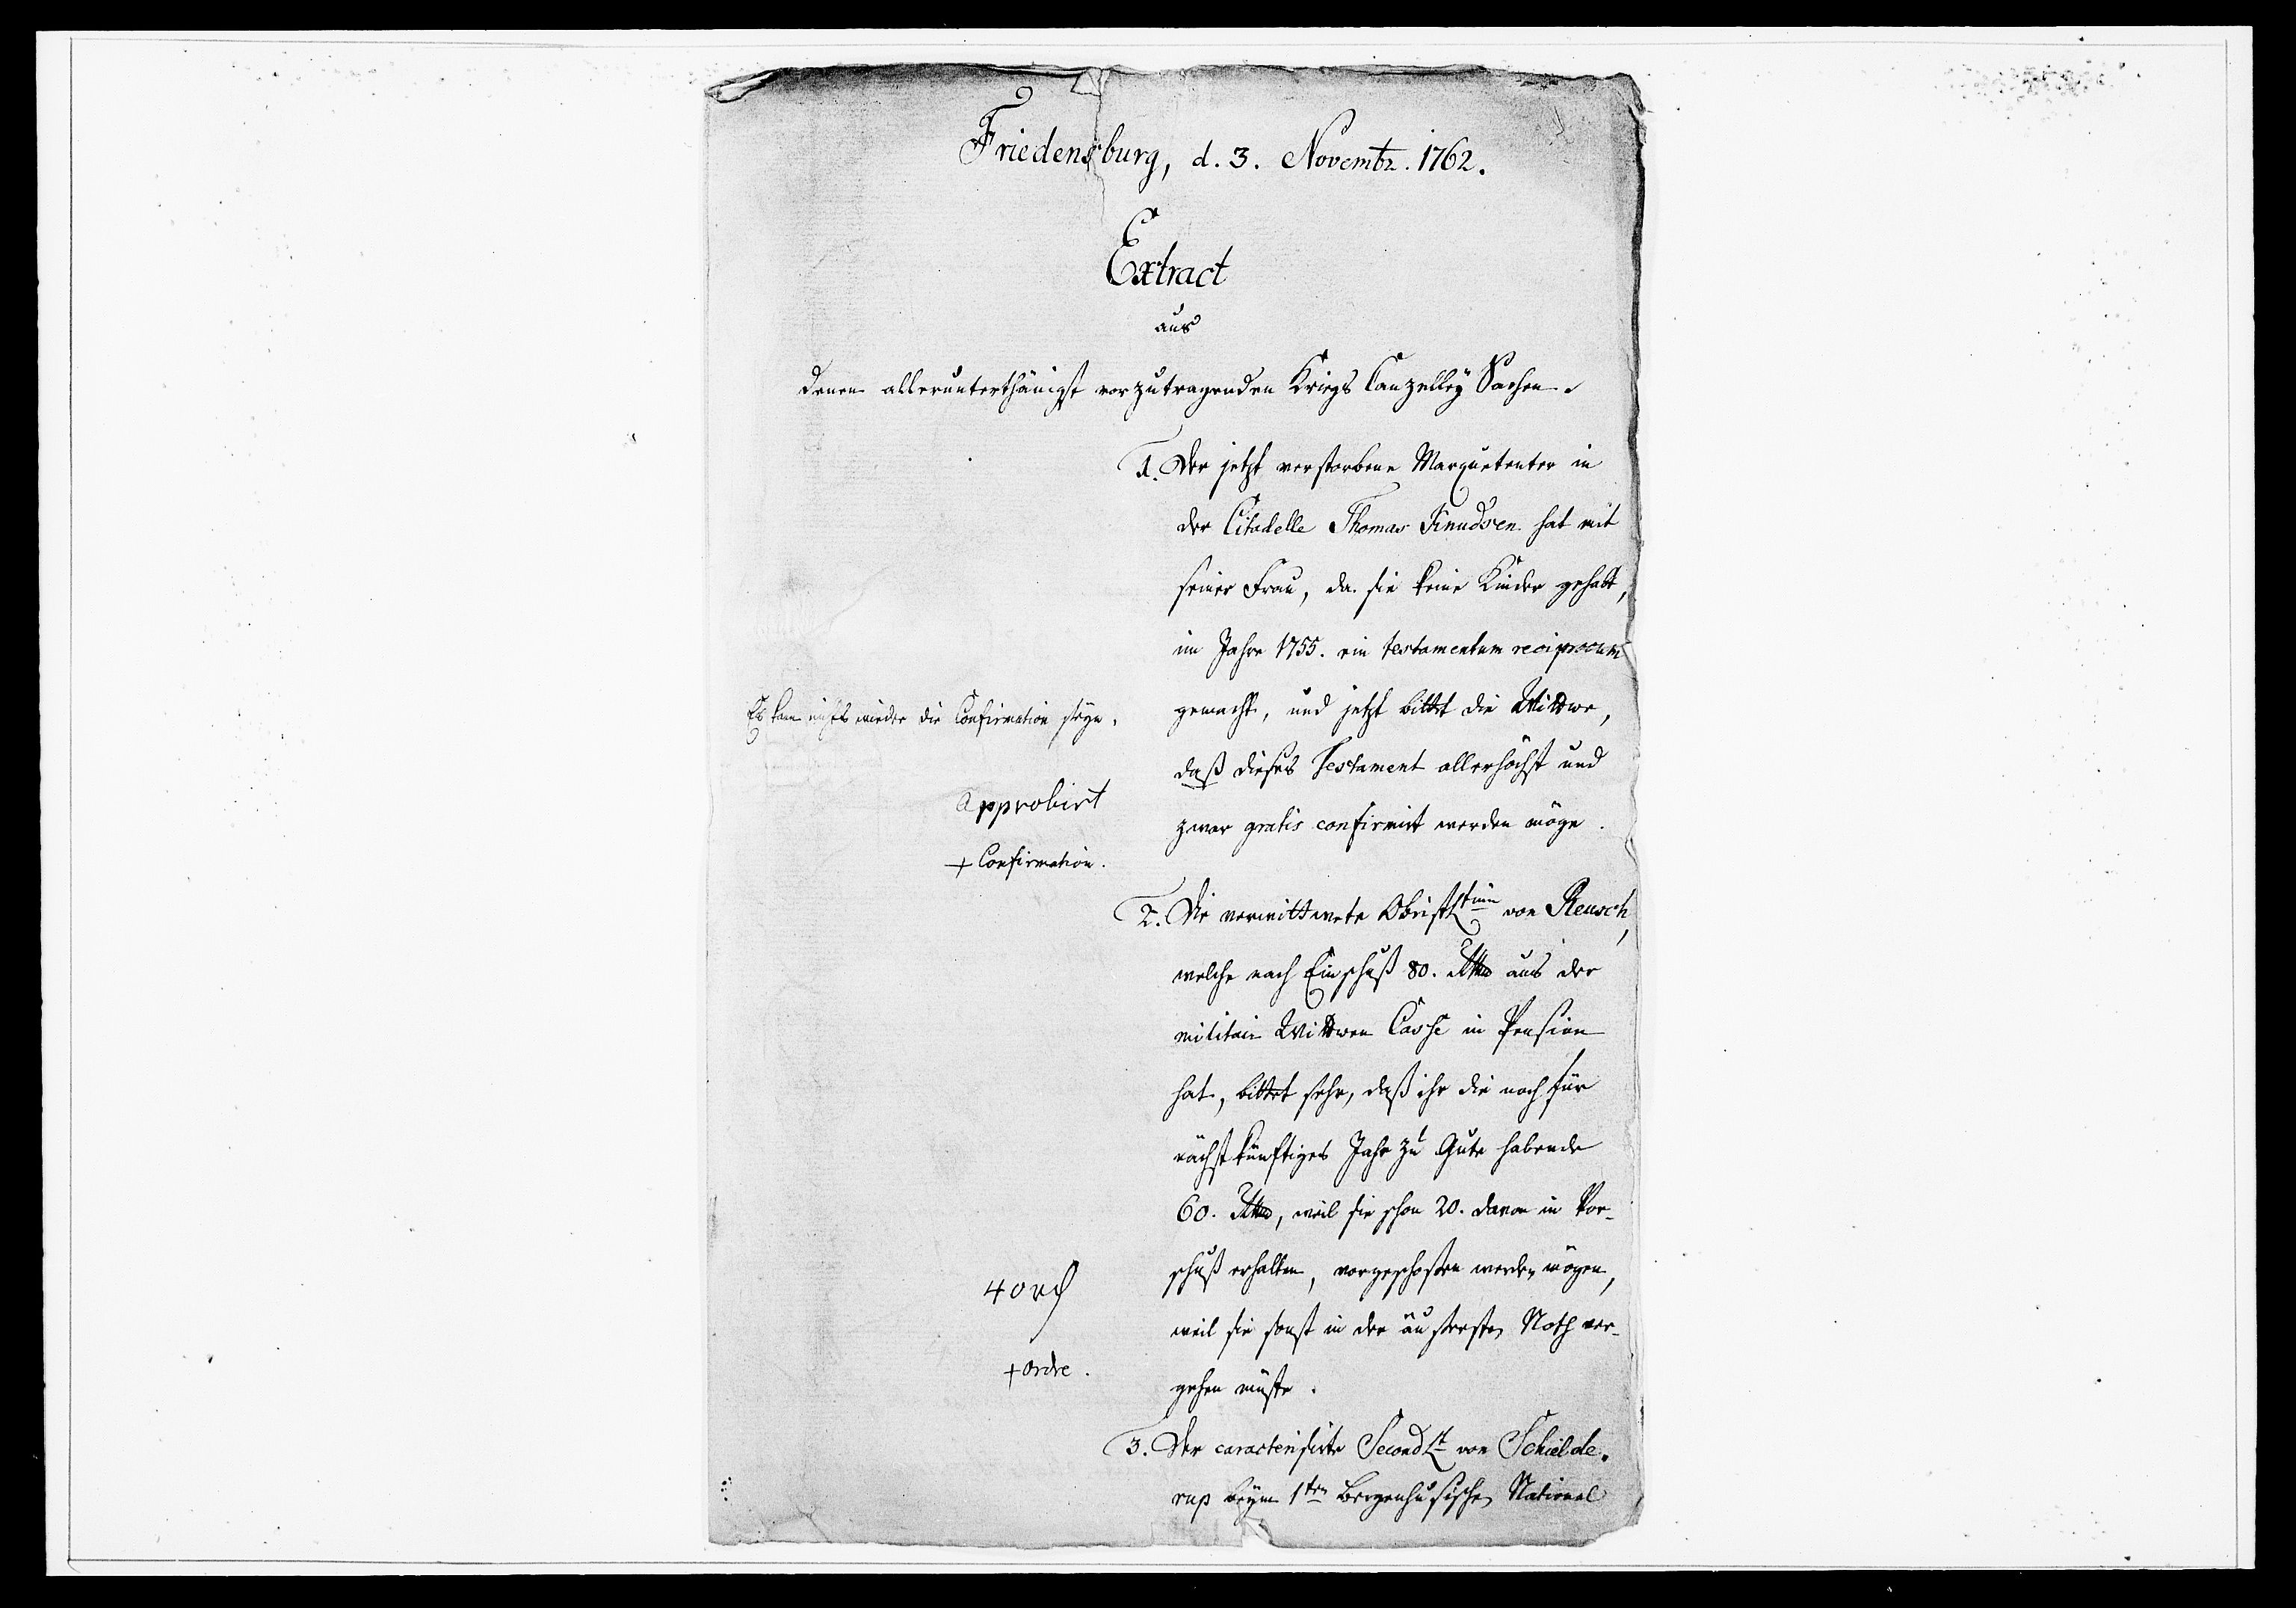 Friedensburg, d. 3. Novembr. 1762.
Extract
aus
denen allerunterthänigst vorzutragenden Kriegs Canzelley Sachen.
1. Der jetzt verstorbene Marquetenter in
der Citadelle Thomas Knudsen hat mit
seiner Frau, da sie keine Kinder gehabt,
im Jahre 1755. ein testamentum reciprocum
gemacht, und jetzt bittet die Wittwe,
daß dieses Testament allerhöchst und
zwar gratis confirmirt werden möge.
Es kan nichts wieder die Confirmation seyn.
approbirt
+ Confirmation.
2. Die verwittwete Obristltinn von Reusch,
welche nach Einschuß 80. Rthlr aus der
militair Wittwen Casse in Pension
hat, bittet sehr, daß ihr die noch für
nächstkünftiges Jahr zu Gute habende
60. Rthlr, weil sie schon 20. davon in Vor-
schuß erhalten, vorgeschoßen werden mögen,
weil sie sonst in der äusersten Noth ver-
gehen müste.
40 rd
+ ordre.
3. Der caracterisirte Second Lt von Schielde-
rup beym 1ten Bergenhusischen National